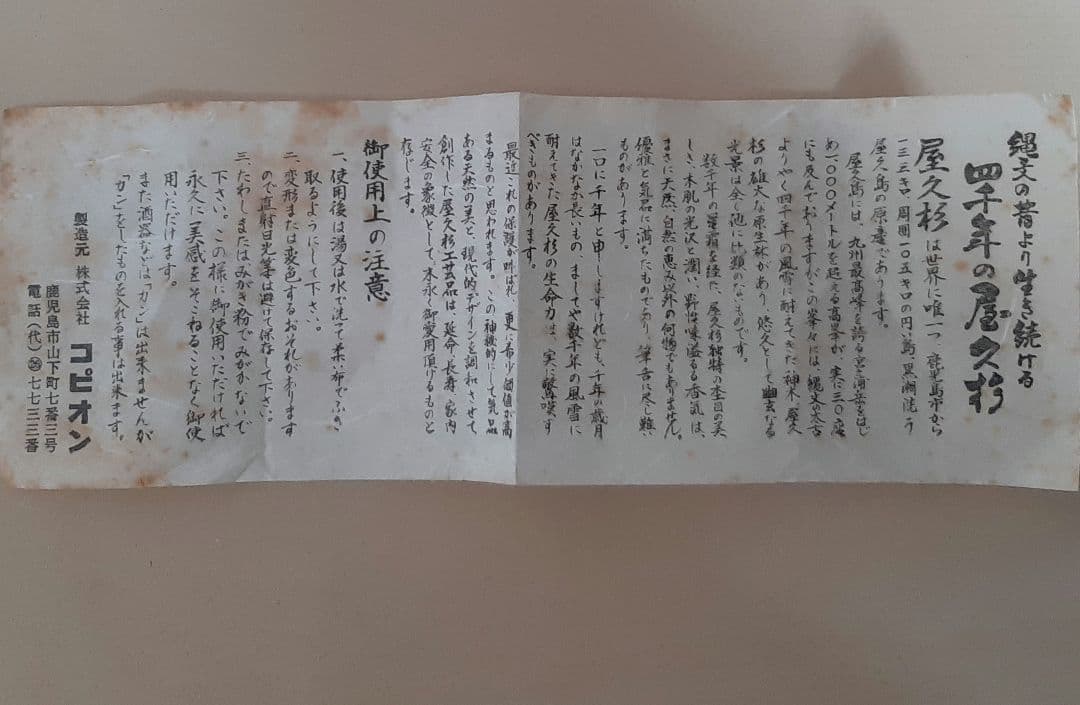 縄文の昔より生き続ける
四千年の屋久杉
屋久杉は世界に唯一つ、鹿児島市から
一三三キロ周囲一〇五キロの円い島、黒潮洗う
屋久島の原産であります。
屋久島には、九州最高峰を誇る宮之浦岳をはじ
め一、〇〇〇メートルを超える高峯が、実に三〇座
にも及んでおりますが、この峯々には、縄文の太古
よりやく四千年の風雪に耐えてきた「神木」屋久
杉の雄大な原生林があり、悠久として幽玄なる
光景は全く他に比類のないものです。
数千年の星霜を経た、屋久杉独特の杢目の美
しさ、木肌の光沢と潤い、野性味溢るる香気は、
まさに天の底、自然の恵み以外の何物でもありません。
優雅と気品に満ちたものであり、筆舌に尽し難い
ものがあります。
一口に千年と申しますけれども、千年の歳月
はなかなか長いもの、ましてや数千年の風雪に
耐えてきた屋久杉の生命力は、実に驚嘆す
べきものがあります。
最近これの保護が叫ばれ 更に希少価値が高
まるものと思われます。この神機的にして気品
ある天然の美と、現代的デザインを調和させて、
創作した屋久杉工芸品は、延命、長寿、家内
安全の象徴として、末永く御愛用頂けるものと
存じます。
御使用上の注意
一、使用後は湯又は水で洗って柔い布でふき
取るようにして下さい。
二、変形または変色するおそれがあります
ので直射日光等は避けて保存して下さい。
三、たわしまたはみがき粉でみがかないで
下さい。この様に御使用いただければ
永久に美感をそこねることなく御使
用いただけます。
また酒器などは「カン」は出来ませんが
「カン」をしたものを入れる事は出来ます。
製造元 株式会社 コピオン
鹿児島市山下町七番三号
電話(代)㉖七七三三番